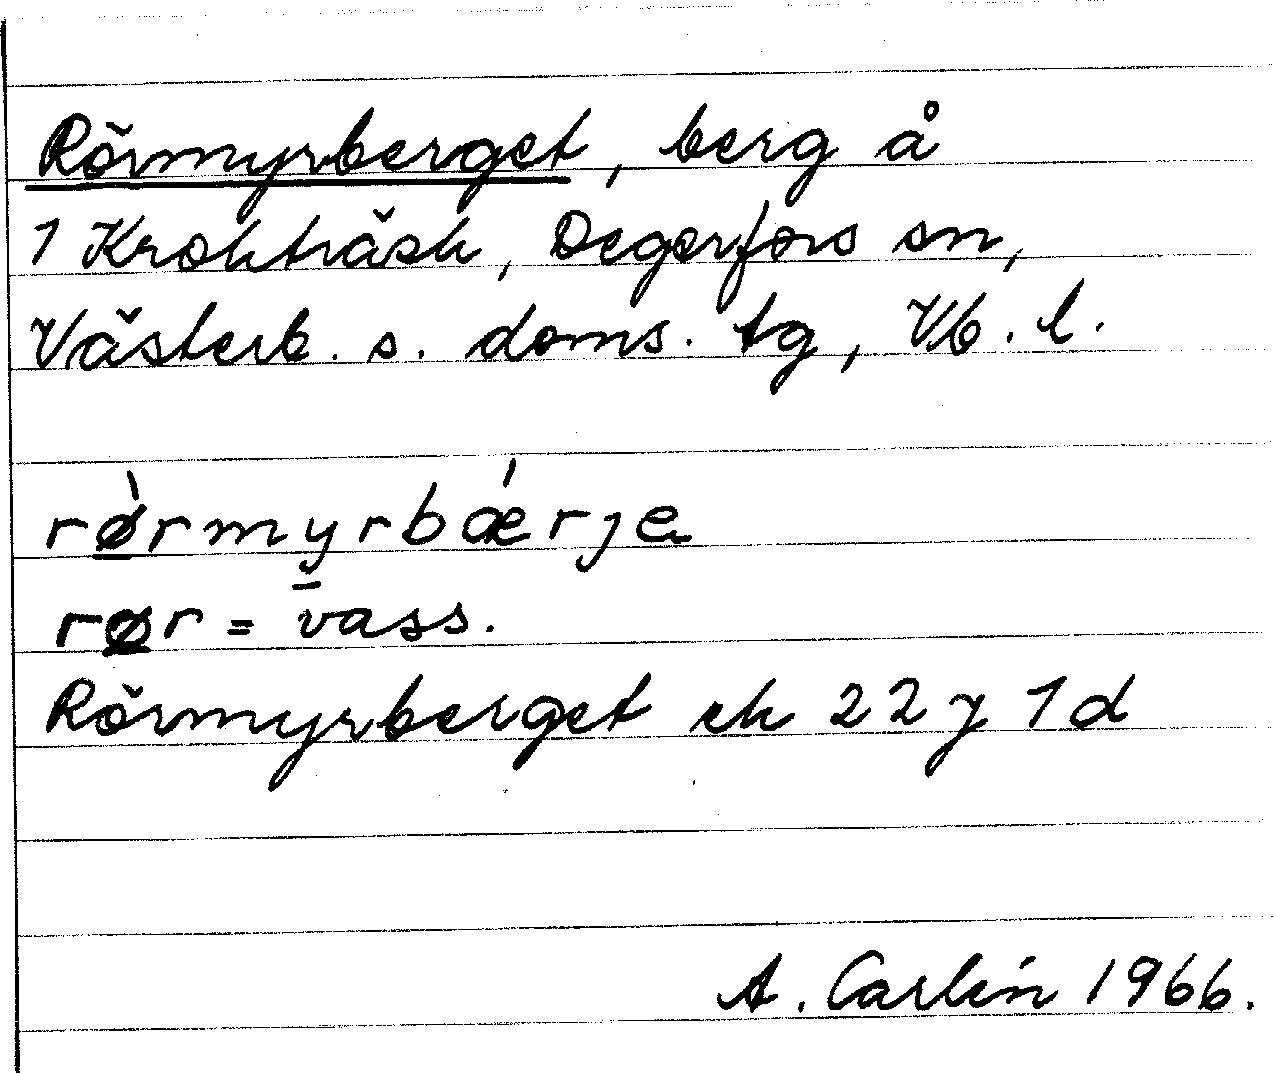 Rörmyrberget, berg å
1 Krokträsk, Degerfors sn,
Västerb. s. doms. tg, Vb. l.
rø̀rmyrbǽrje
rør = vass.
Rörmyrberget ek 22 j 1 d
A. Carlén 1966.